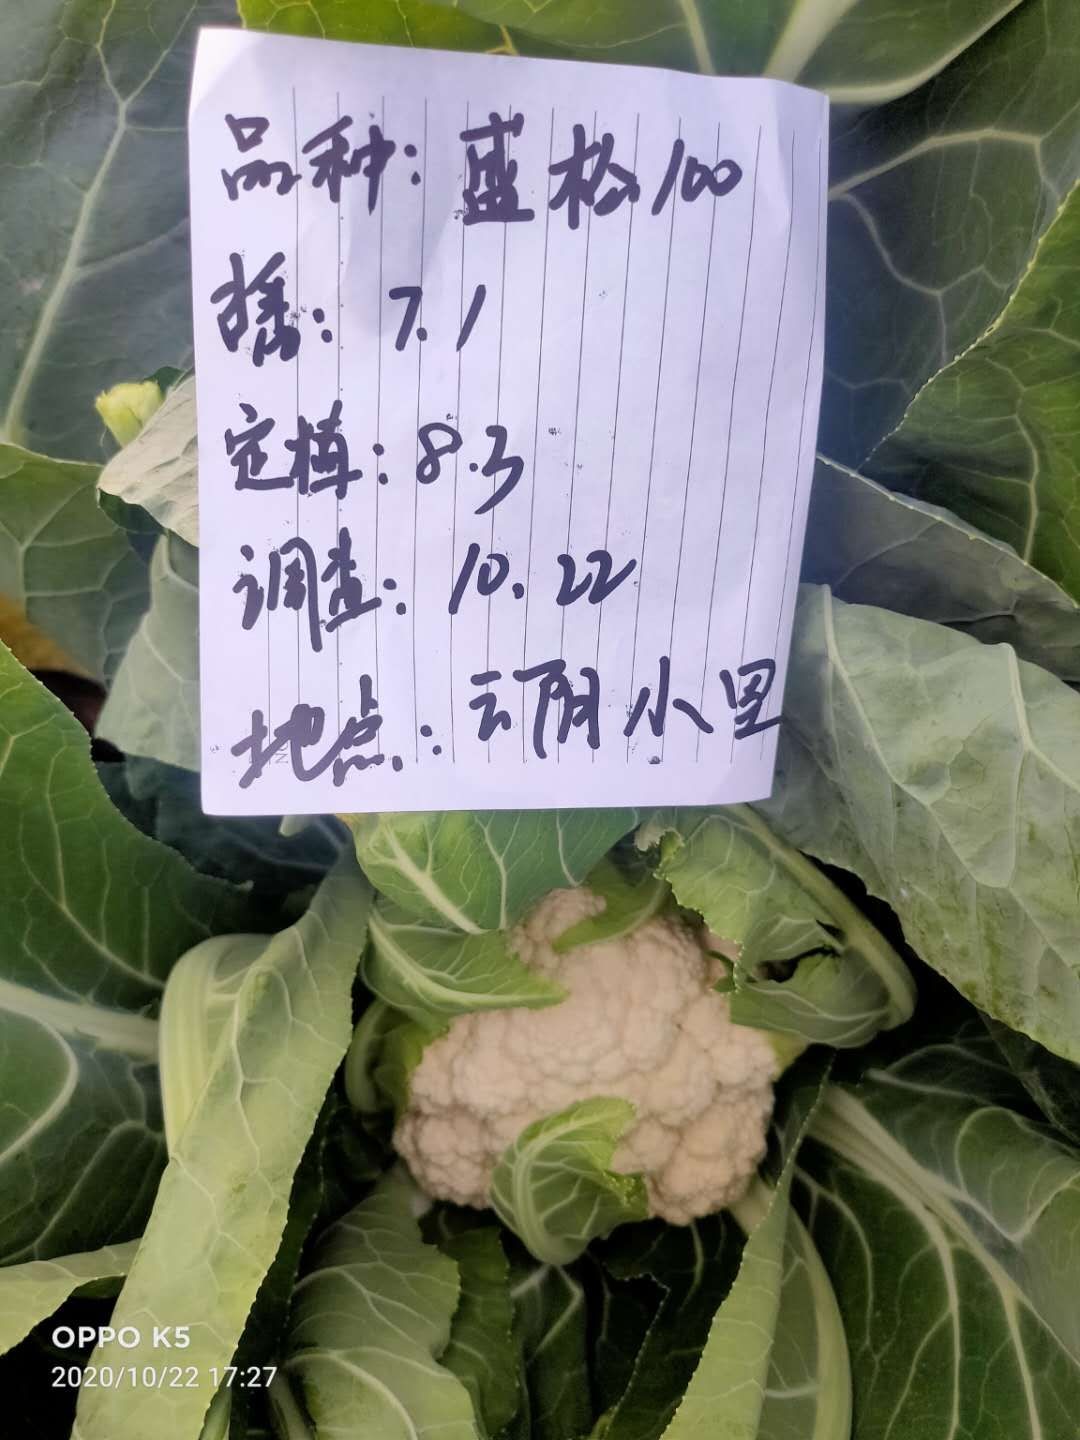 品种：盛松100
播：7.1
定植：8.3
调查：10.22
地点：云阴小里
OPPO K5
2020/10/22 17:27